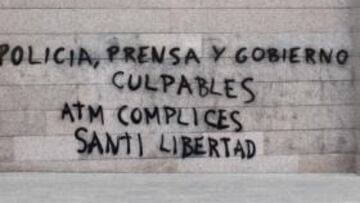 POLICIA, PRENSA Y GOBIERNO
CULPABLES
ATM COMPLICES
SANTI LIBERTAD